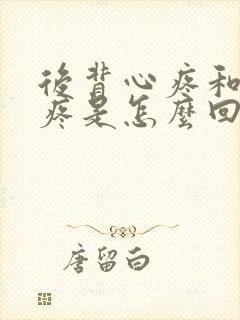 後背心疼和
疼是怎麼回
唐留白